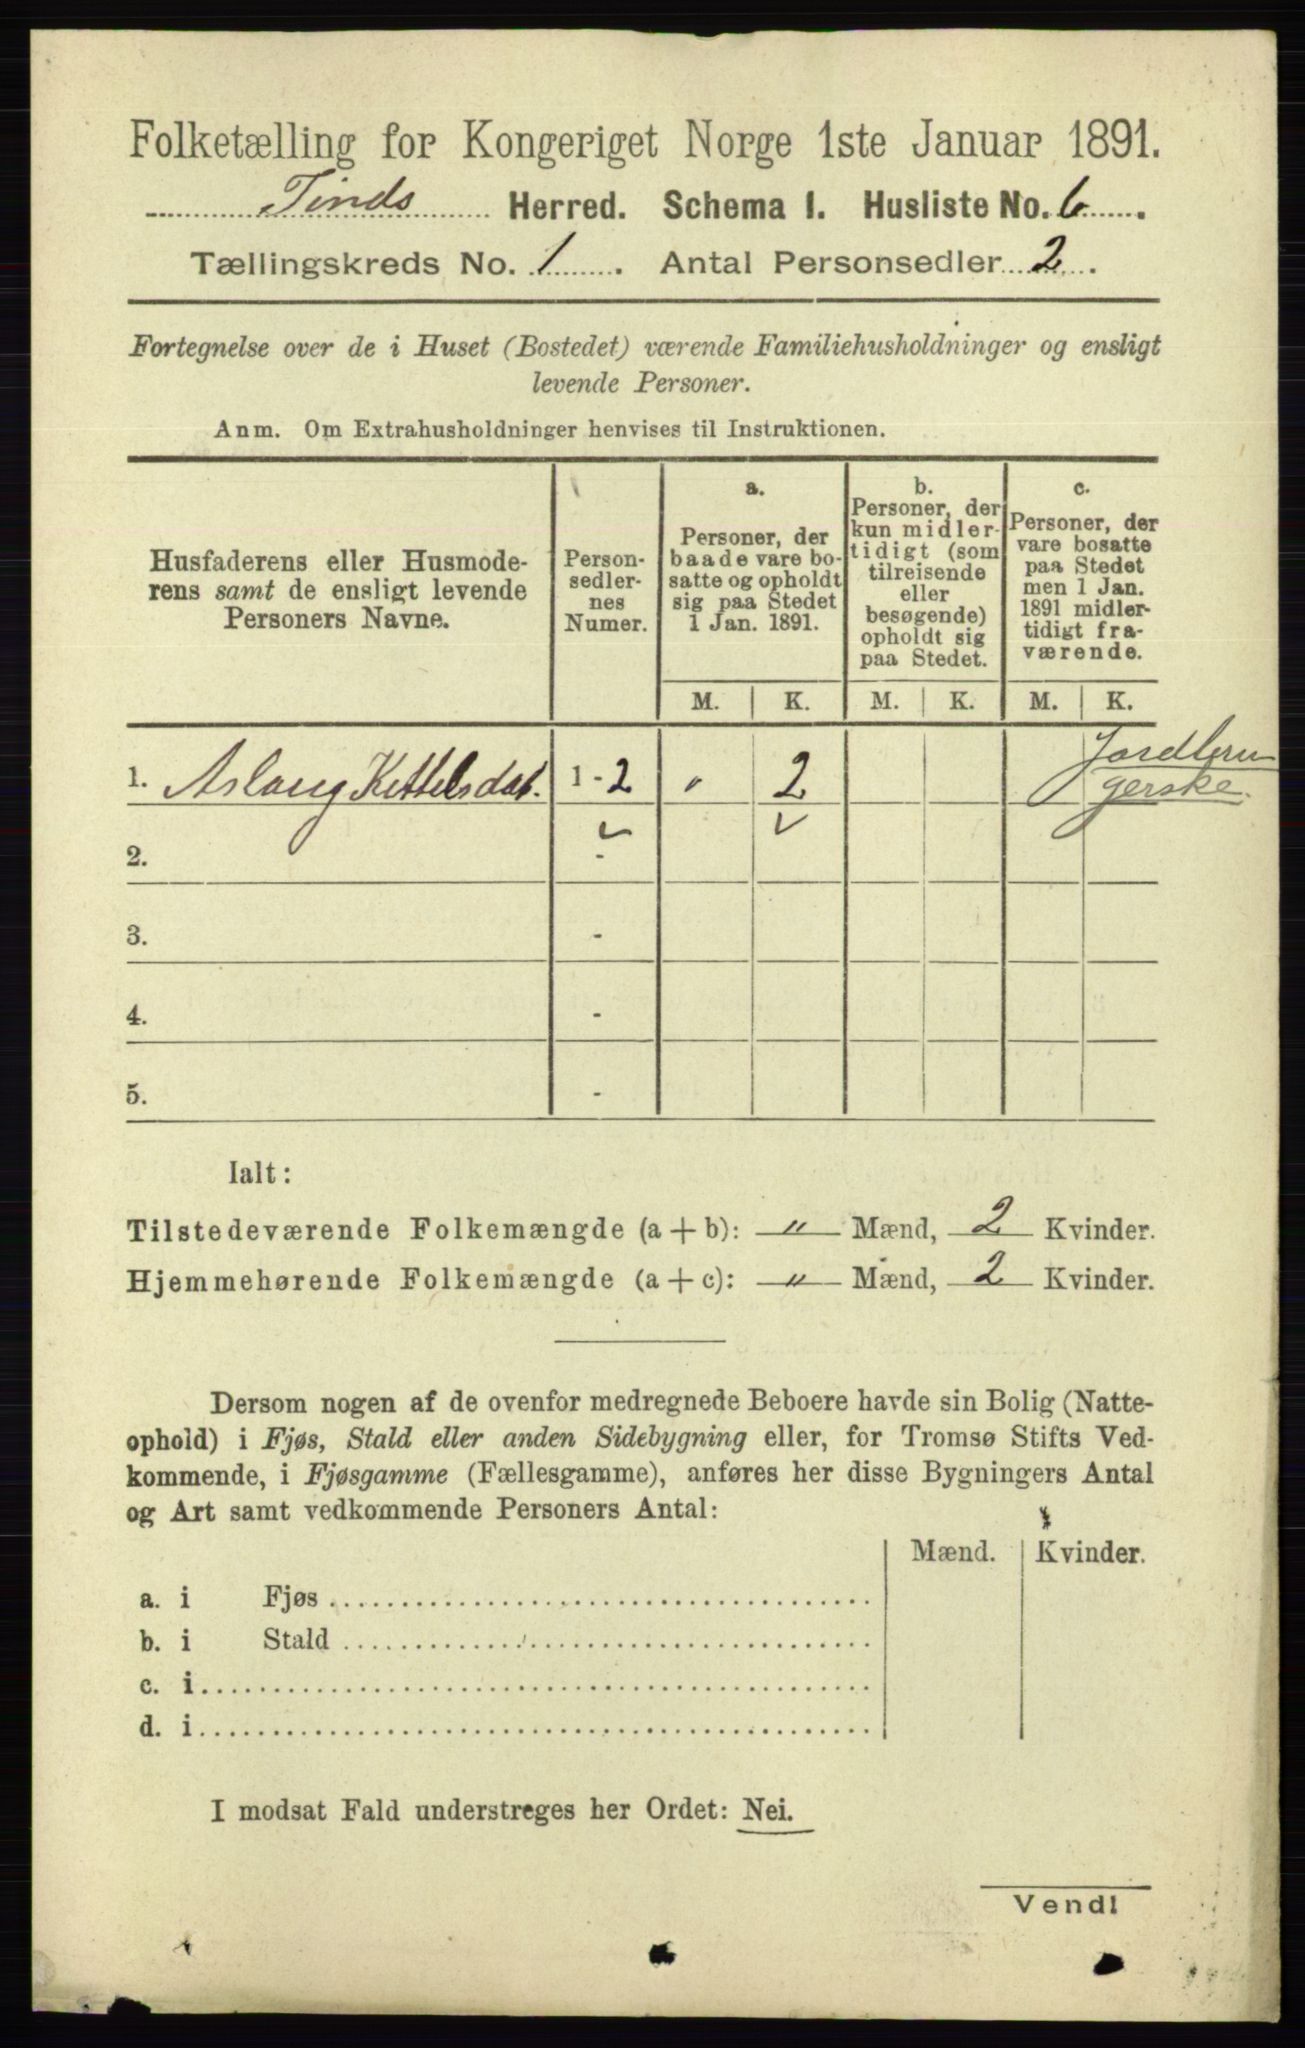 Folketælling for Kongeriget Norge 1ste Januar 1891.
Tinds Herred. Schema I. Husliste No. 6
Tællingskreds No. 1. Antal Personsedler 2.
Fortegnelse over de i Huset (Bostedet) værende Familiehusholdninger og ensligt
levende Personer.
Anm. Om Extrahusholdninger henvises til Instruktionen.
Husfaderens eller Husmode-
rens samt de ensligt levende
Personers Navne.
Person-
sedler-
nes
Numer.
a.
Personer, der
baade vare bo-
satte og opholdt
sig paa Stedet
1 Jan. 1891.
b.
Personer, der
kun midler-
tidigt (som
tilreisende
eller
besøgende)
opholdt sig
paa Stedet.
c.
Personer, der
vare bosatte
paa Stedet
men 1 Jan.
1891 midler-
tidigt fra-
værende.
M. K. M. K. M. K.
1. Aslaug Kettelsdat. 1 - 2 " 2
Jordbru
gerske.
2. -
3. -
4. -
5. -
Ialt:
Tilstedeværende Folkemængde (a + b): " Mænd, 2 Kvinder.
Hjemmehørende Folkemængde (a + c): " Mænd, 2 Kvinder.
Dersom nogen af de ovenfor medregnede Beboere havde sin Bolig (Natte-
ophold) i Fjøs, Stald eller anden Sidebygning eller, for Tromsø Stifts Ved-
kommende, i Fjøsgamme (Fællesgamme), anføres her disse Bygningers Antal
og Art samt vedkommende Personers Antal:
Mænd. Kvinder.
a. i Fjøs
b. i Stald
c. i
d. i
I modsat Fald understreges her Ordet: Nei.
Vend!